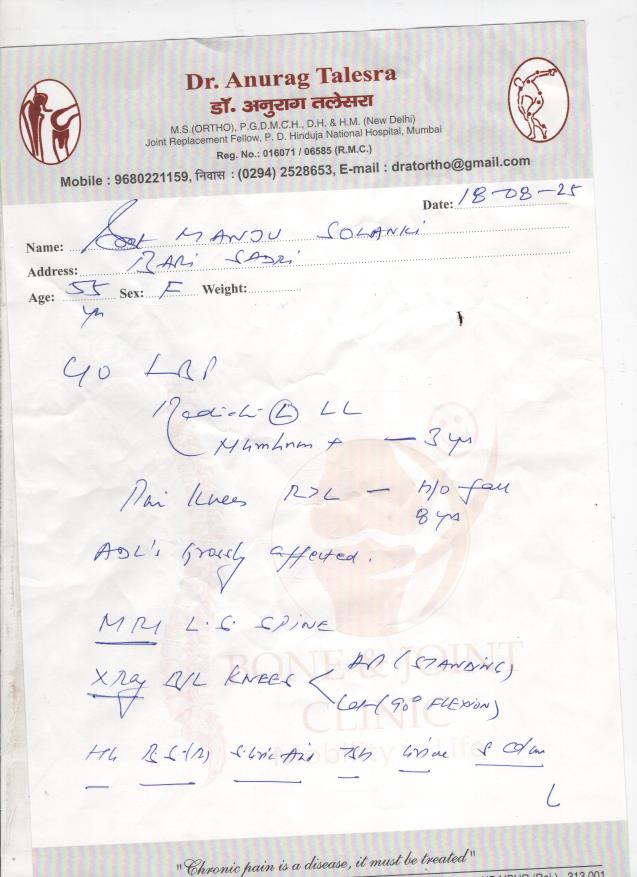 Dr. Anurag Talesra
डॉ. अनुराग तलेसरा
M.S.(ORTHO), P.G.D.M.C.H., D.H. & H.M. (New Delhi)
Joint Replacement Fellow, P. D. Hinduja National Hospital, Mumbai
Reg. No.: 016071 / 06585 (R.M.C.)
Mobile : 9680221159, निवास : (0294) 2528653, E-mail : dratortho@gmail.com
Date: 18-08-25
Name: MANJU SOLANKI
Address: BARI SADRI
Age: 55 Sex: F Weight:
yrs
C/O LBP
L LL
Numbness + — 3 yrs
Pain Knees R>L — H/O fall
8 yrs
ADL's grossly affected.
MRI L.S. SPINE
X Ray B/L KNEES AP (STANDING)
Lat (90° FLEXION)
BONE & JOINT
CLINIC
Mobility is Life
Hb B.S.(R) S.Uric Acid TSH Urine
"Chronic pain is a disease, it must be treated"
313 001